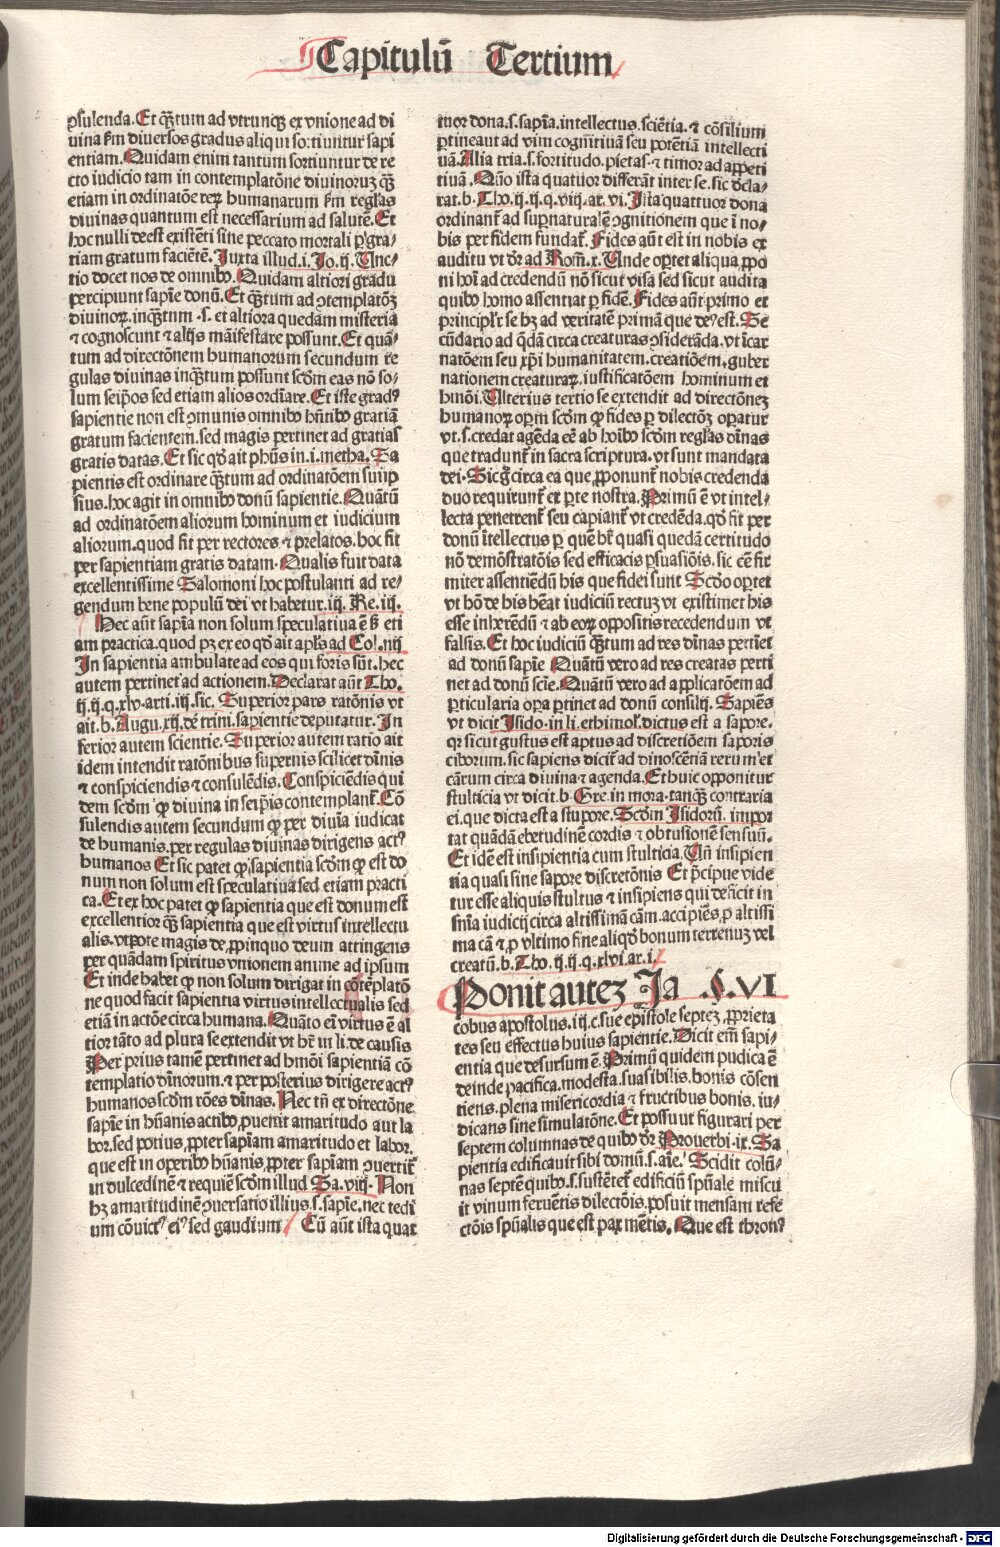 Capitulũ Tertium
ꝑsulenda. Et qꝫtum ad vtrunqꝫ ex vnione ad di
uina ẜm diuersos gradus aliqui sortiuntur sapi
entiam. Quidam enim tantum sortiuntur de re
cto iudicio tam in contemplatõne diuinoruꝫ qꝫ̃
etiam in ordinatõe reꝝ humanarum ẜm reglas
diuinas quantum est necessarium ad salutẽ. Et
hoc nulli deest existẽti sine peccato mortali ꝑ gra/
tiam gratum faciẽtẽ. Juxta illud .i. Jo. ij. Vnc/
tio docet nos de omnibꝰ. Quidam altiori gradu
percipiunt sapiẽ donũ. Et qꝫ̃tum ad ꝯtemplatõꝫ
diuinoꝝ. inqꝫ̃tum .s. et altiora quedam misteria
⁊ cognoscunt ⁊ alijs mãifestare possunt. Et quã/
tum ad directõnem humanorum secundum re
gulas diuinas inqꝫ̃tum possunt scd̃m eas nõ so/
lum seip̃os sed etiam alios ordĩare. Et iste gradꝰ
sapientie non est ꝯmunis omnibꝰ hñtibꝰ gratiã
gratum facientem. sed magis pertinet ad gratias
gratis datas. Et sic qd̃ ait ph̃us in .i. metha. Sa
pientis est ordinare qꝫ̃tum ad ordinatõem suup
sius. hoc agit in omnibꝰ donũ sapientie. Quãtũ
ad ordinatõem aliorum hominum et iudicium
aliorum. quod fit per rectores ⁊ prelatos. hoc fit
per sapientiam gratis datam. Qualis fuit data
excellentissime Salomoni hoc postulanti ad re/
gendum bene populũ dei vt habetur .iij. Re. iij.
Hec aũt sapĩa non solum speculatiua ẽ ẜ eti
am practica. quod pꝫ ex eo qd̃ ait apl̃s ad Col. iiij
In sapientia ambulate ad eos qui foris sũt. hec
autem pertinet ad actionem. Declarat aũt Tho.
ij. ij. q. xlv. arti. iij. sic. Superior pars ratõnis vt
ait. b. Augu. xij. de trini. sapientie deputatur. In
ferior autem scientie. Superior autem ratio ait
idem intendit ratõnibus supernis scilicet diuĩnis
⁊ conspiciendis ⁊ consulẽdis. Conspiciẽdis qui
dem scd̃m ꝙ diuina in seip̃is contemplant᷑. Cõ
sulendis autem secundum ꝙ per diuĩa iudicat
de humanis. per regulas diuinas dirigens actꝰ
humanos Et sic patet ꝙ sapientia scd̃m ꝙ est do
num non solum est speculatiua sed etiam practi
ca. Et ex hoc patet ꝙ sapientia que est donum est
excellentior qꝫ̃ sapientia que est virtus intellectu
alis. vtpote magis de ꝓpinquo deum attingens
per quãdam spiritus vnionem anime ad ipsum
Et inde habet ꝙ non solum dirigat in cõtẽplatõ
ne quod facit sapientia virtus intellectualis sed
etiã in actõe circa humana. Quãto eĩ virtus ẽ al
tior tãto ad plura se extendit vt hr̃ in li. de causis
Per prius tamẽ pertinet ad hmõi sapientiã cõ
templatio dĩnorum. ⁊ per posterius dirigere actꝰ
humanos scd̃m rões dĩnas. Nec tñ ex directõne
sapĩe in hũanis actibꝰ ꝓuenit amaritudo aut la
bor. sed potius ꝓpter sapĩam amaritudo et labor.
que est in operibꝰ hũanis. ꝓpter sapĩam ꝯuertit᷑
in dulcedinẽ ⁊ requiẽ scd̃m illud Sa. viij. Non
hꝫ amaritudinẽ ꝯuersatio illius .s. sapĩe. nec tedi
um cõuictꝰ eiꝰ sed gaudium. Cũ aũt ista quat
tuor dona .s. sapĩa. intellectus. sciẽtia. ⁊ cõsilium
ꝑtineant ad vim cognitiuã seu potẽtiã intellecti
uã. Alia tria .s. fortitudo. pietas. ⁊ timor ad appeti
tiuã. Quõ ista quatuor differãt inter se. sic decla/
rat. b. Tho. ij. ij. q. viij. ar. vi. Ista quattuor dona
ordinant᷑ ad supnaturalẽ ꝯgnitionem que ĩ no/
bis per fidem fundat᷑. Fides aũt est in nobis ex
auditu vt dr̃ ad Rom̃. x. Unde oꝑtet aliqua ꝓpo
ni hoĩ ad credendũ nõ sicut visa sed sicut audita
quibꝰ homo assentiat ꝑ fidẽ. Fides aũt primo et
principlr̃ se hꝫ ad veritatẽ primã que deꝰ est. Se
cũdario ad qd̃ã circa creaturas ꝯsiderãda. vt ĩcar
natõem seu xp̃i humanitatem. creatiõem. guber
nationem creaturaꝝ. iustificatõem hominum et
hmõi. Ulterius tertio se extendit ad directõneꝫ
humanoꝝ oꝑm scd̃m ꝙ fides ꝑ dilectõꝫ oꝑatur
vt .s. credat agẽda eẽ ab hoĩbꝰ scd̃m reglas dĩnas
que tradunt᷑ in sacra scriptura. vt sunt mandata
dei. Sic g̃ circa ea que ꝓponunt᷑ nobis credenda
duo requirunt᷑ ex ꝑte nostra. Primũ ẽ vt intel/
lecta penetrent᷑ seu capiant᷑ vt credẽda. qd̃ fit per
donũ ĩtellectus ꝑ quẽ hr̃ quasi quedã certitudo
nõ demõstratõis sed efficacis ꝑsuasiõis. sic eẽ fir
miter assentiẽdũ his que fidei sunt Scd̃o oꝑtet
vt hõ de his hẽat iudiciũ rectuꝫ vt existimet his
esse inherẽdũ ⁊ ab eoꝝ oppositis recedendum vt
falsis. Et hoc iudiciũ qꝫ̃tum ad res dĩnas pertĩet
ad donũ sapĩe Quãtũ vero ad res creatas perti
net ad donũ scĩe. Quãtũ vero ad applicatõem ad
ꝑticularia oꝑa ꝑtinet ad donũ consilij. Sapiẽs
vt dicit Isido. in li. ethimol̃. dictus est a sapore.
qr sicut gustus est aptus ad discretiõem saporis
ciborum. sic sapiens dicit᷑ ad dinoscẽtiã rerum et
cãrum circa diuina ⁊ agenda. Et huic opponitur
stulticia vt dicit. b. Gre. in mora. tanqꝫ̃ contraria
ei. que dicta est a stupore. Scd̃m Isidorũ. impor
tat quãdã ebetudinẽ cordis ⁊ obtusionẽ sensuũ.
Et idẽ est insipientia cum stulticia. Uñ insipien
tia quasi sine sapore discretõnis Et p̃cipue vide
tur esse aliquis stultus ⁊ insipiens qui deficit in
sñia iudicij circa altissimã cãm. accipiẽs. ꝓ altissi
ma cã ⁊ ꝓ vltimo fine aliqd̃ bonum terrenuꝫ vel
creatũ. b. Tho. ij. ij. q. xlvi. ar. i.
Ponit auteꝫ Ja .§. VI
cobus apostolus .iij. c. sue epistole septeꝫ ꝓprieta
tes seu effectus huius sapientie. Dicit em̃ sapi/
entia que desursum ẽ. Primũ quidem pudica ẽ
deinde pacifica. modesta. suasibilis. bonis cõsen
tiens. plena misericordia ⁊ fructibus bonis. iu/
dicans sine simulatõne. Et possunt figurari per
septem columnas de quibꝰ dr̃ Prouerbi. ix. Sa
pientia edificauit sibi domũ .s. aĩe. Scidit colũ/
nas septẽ quibꝰ .s. sustẽtet᷑ edificiũ spũale miscu
it vinum feruẽtis dilectõis. posuit mensam refe
ctõis spũalis que est pax mẽtis. Que est thronꝰ
Digitalisierung gefördert durch die Deutsche Forschungsgemeinschaft - DFG